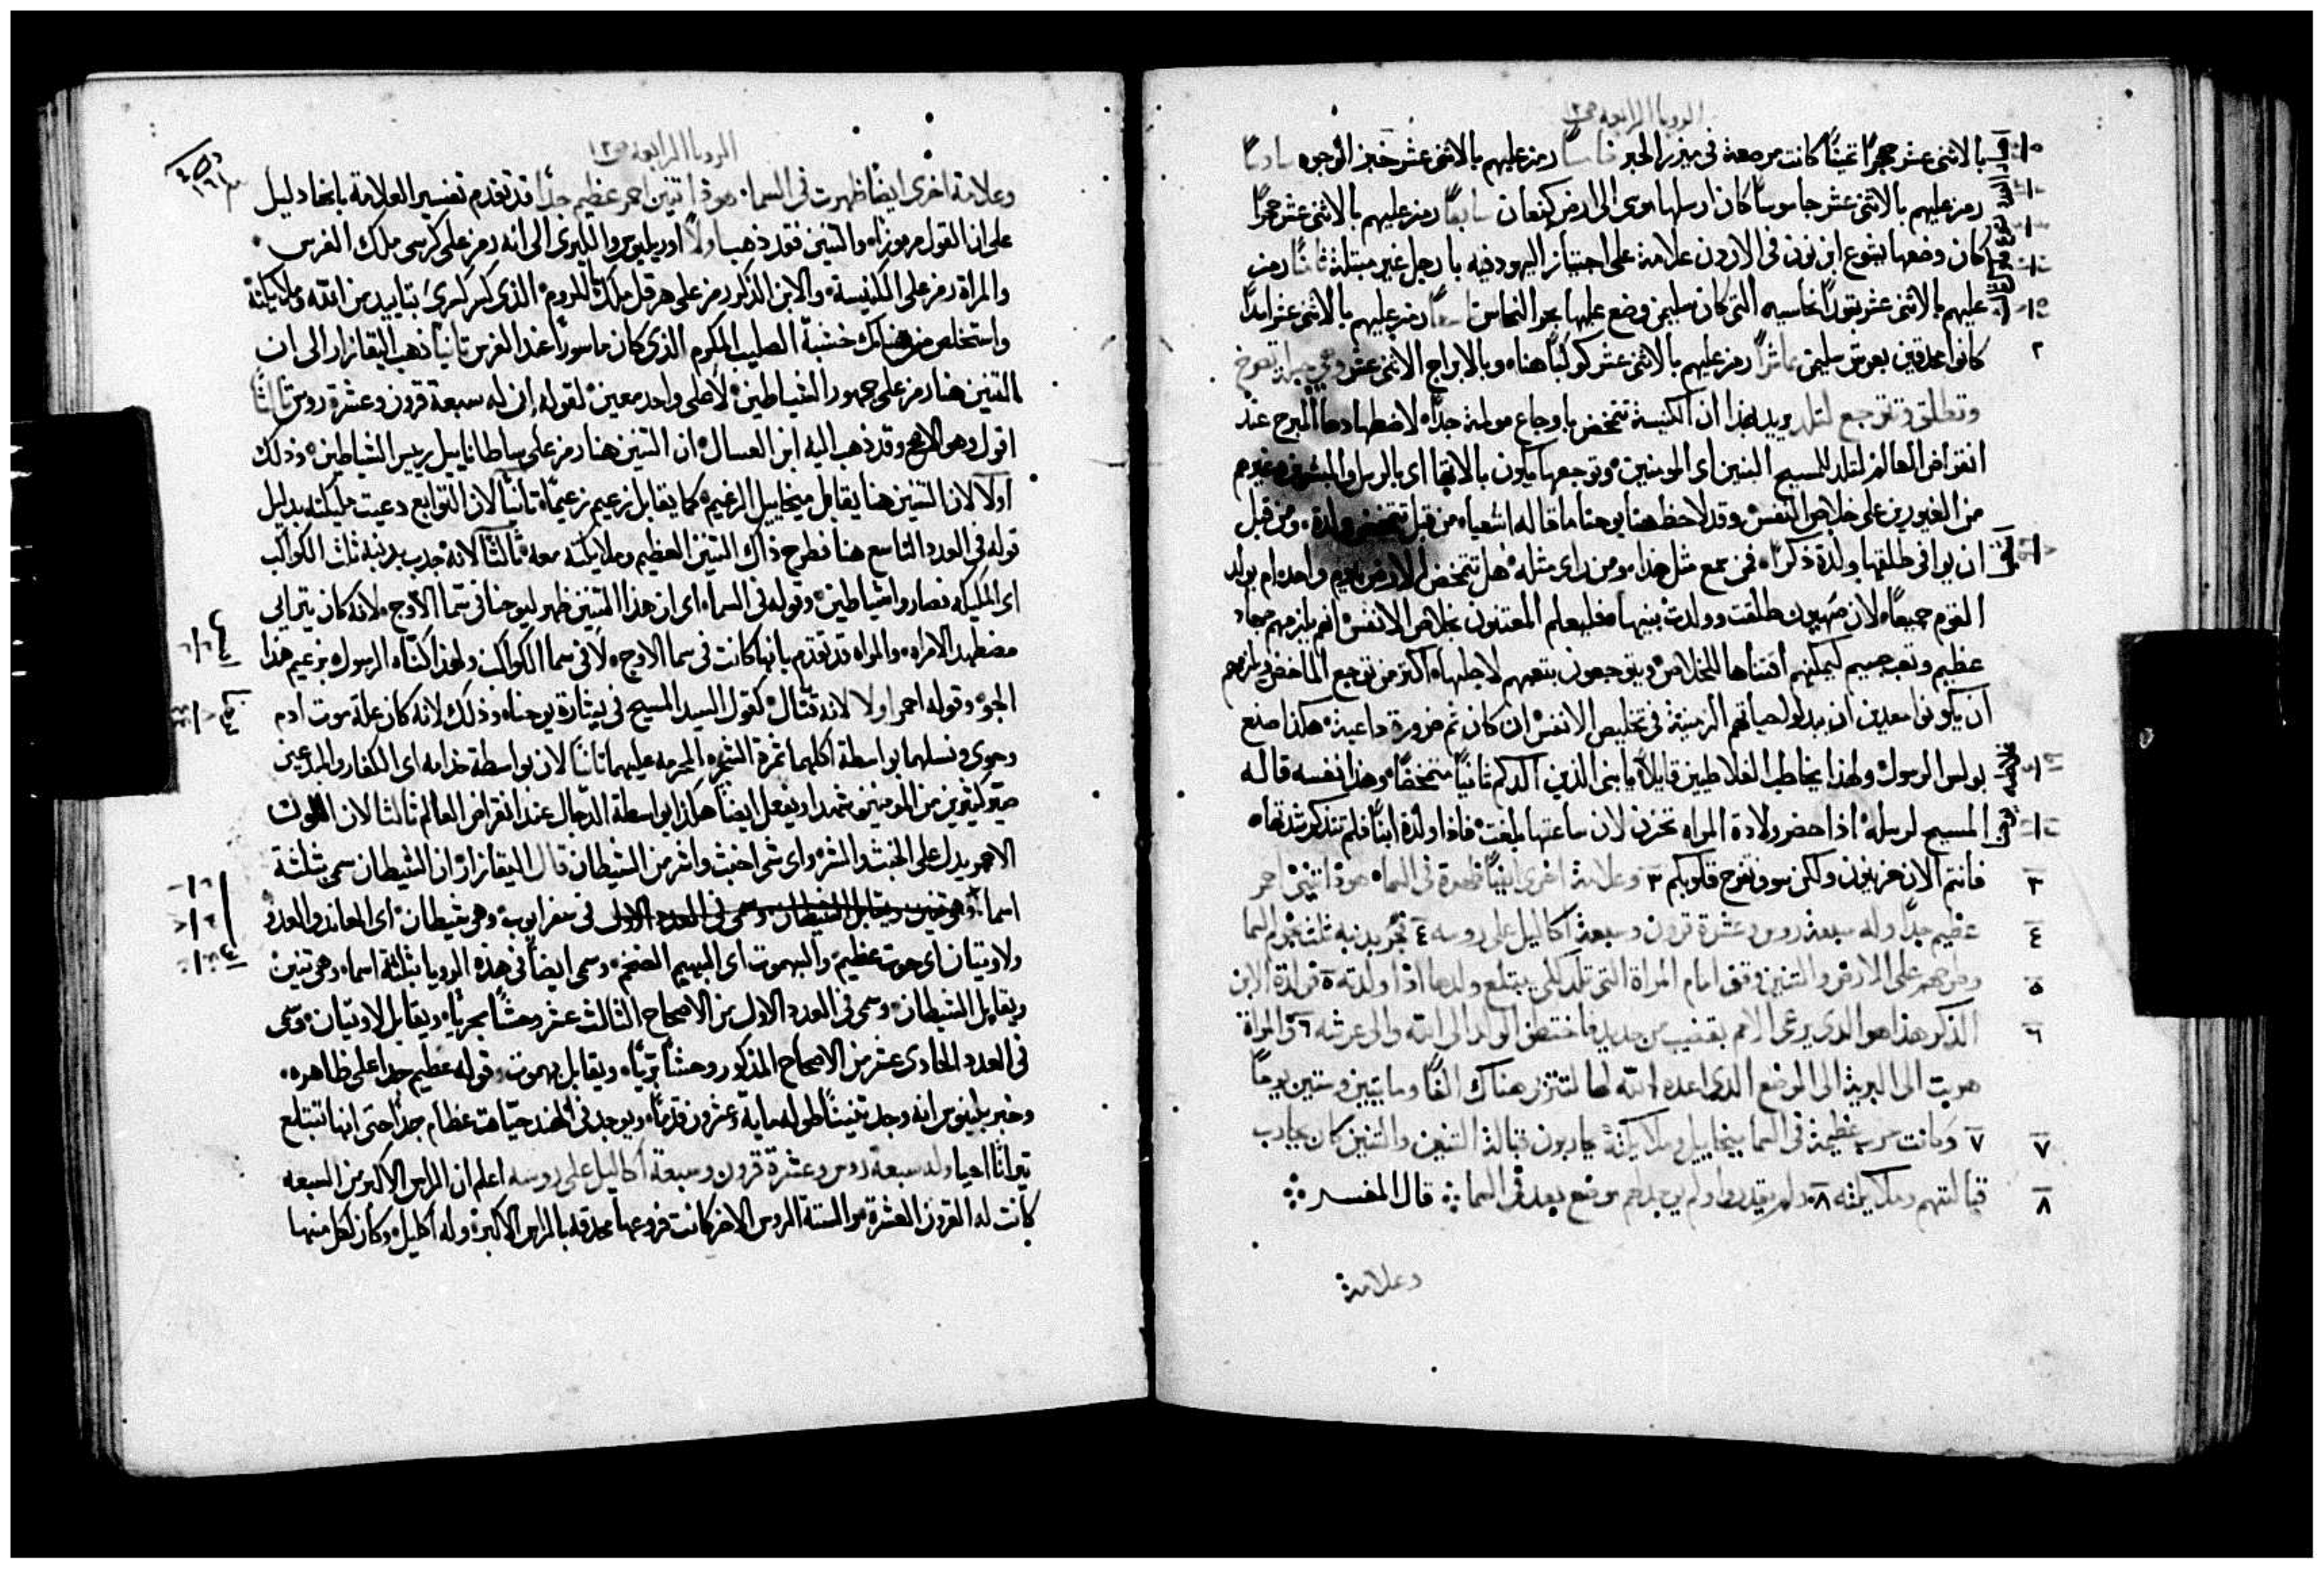 الرويا الرابعة ص١٢
بالاثنى عشر حجرًا ثمينًا كانت مرصعة فى ميزر الحبر خامسًا رمز عليهم بالاثنى عشر خبز الوجوه سادسًا
رمز عليهم بالاثنى عشر جاسوسًا كان ارسلها موسى الى ارض كنعان سابعًا رمز عليهم بالاثنى عشر حجرًا
كان وضعها يشوع ابن نون فى الاردن علامة على اجتياز اليهود فيه بارجل غير مبتلة ثامنًا رمز
عليهم بالاثنى عشر ثورًا نحاسيه التى كان سليمن وضع عليها بحر النحاس تاسعًا رمز عليهم بالاثنى عشر اسدًا
كانوا محدقين بعرش سليمن عاشرًا رمز عليهم بالاثنى عشر كوكبًا هنا، وبالابراج الاثنى عشر وهى حبلى تصرخ
وتطلق وتتوجع لتلد يريد بهذا ان الكنيسة تتمخض باوجاع مولمة جدًّا، لاضطهادها المبرح عند
انقراض العالم لتلد للمسيح البنين اى المومنين، وتوجعها يكون بالانقيا اى بالرسل والمبشرين وغيرهم
من الغيورين على خلاص النفس، وقد لاحظ هنا يوحنا ما قاله اشعيا، من قبل تتمخض ولدة، ومن قبل
ان يوافى طلقها ولدة ذكرًا، فمن سمع مثل هذا، ومن راى مثله، هل تتمخض الارض بيوم واحد، ام يولد
القوم جميعًا، لان صهيون طلقت وولدت بنيها، فليعلم المعتنون بخلاص الانفس، انهم يلزمهم جهاد
عظيم وتعب جسيم ليمكنهم اقتناها للخلاص، ويتوجعون بتعبهم لاجلها، اكثر من توجع الماخض، ويلزمهم
ان يكونوا معدين ان يبذلوا حياتهم الزمنية فى تخليص الانفس، ان كان ثم ضرورة داعية، هكذا صنع
بولس الرسول، ولهذا يخاطب الغلاطيين قايلًا، يا بنى الذين الدكم ثانيًا متمخضًا، وهذا نفسه قاله
المسيح لرسله، اذا حضر ولادة المراه تحزن لان ساعتها بلغت، فاذا ولدة ابنًا فلم تتذكر شدتها،
فانتم الان حزينون ولكن سوف تفرح قلوبكم ٣ وعلامة اخرى ايضًا ظهرة فى السما، هوذا تنين احمر
عظيم جدًّا وله سبعة روس وعشرة قرون وسبعة اكاليل على روسه ٤ تجر بذنبه ثلث نجوم السما
وطرحهم على الارض والتنين وقف امام المراة التى تلد لكى يبتلع ولدها اذا ولدته ٥ فولدة الابن
الذكر هذا هو الذى يرعى الامم بقضيب من حديد فاختطف الولد الى الله والى عرشه ٦ والمراة
هربت الى البرية الى الموضع الذى اعده الله لها لتتربى هناك الفًا ومايتين وستين يومًا
٧ وكانت حرب عظيمة فى السما ميخاييل وملايكتة يحاربون قبالة التنين والتنين كان يحارب
قبالتهم وملايكته ٨ ولم يقدروا ولم يوجد لهم موضع بعد فى السما قال المفسر
وعلامة
الرويا الرابعة ص١٢
وعلامة اخرى ايضًا ظهرت فى السما، هوذا تنين احمر عظيم جدًّا قد تقدم تفسير العلامة بانها دليل
على ان القول مرموز، والتنين فقد ذهب اولًا اوريليوس والليرى الى انه رمز على كسرى ملك الفرس،
والمراة رمز على الكنيسة، والابن الذكر رمز على هرقل ملك الروم، الذى كسر كسرى بتاييد من الله وملايكتة
واستخلص من هناك خشبة الصليب المكرم الذى كان ماسورًا عند الفرس ثانيًا ذهب اليقازار الى ان
التنين هنا رمز على جمهور الشياطين، لا على واحد معين، لقوله، ان له سبعة قرون وعشرة روس ثالثًا
اقول وهو الاصح وقد ذهب اليه ابن العسال، ان التنين هنا رمز على ساطاناييل رييس الشياطين، وذلك
اولًا لان التنين هنا يقابل ميخاييل الزعيم، كما يقابل زعيم زعيمًا، ثانيًا لان التوابع دعيت مليكته بدليل
قوله فى العدد التاسع هنا فطرح ذاك التنين العظيم وملايكته معه، ثالثًا لانه جذب بذنبه ثلث الكواكب
اى المليكه فصاروا شياطين، وقوله فى السما، اى ان هذا التنين ظهر ليوحنا فى سما الاوج، لانه كان يترايى
مضطهد الامراه، والمراه قد تقدم بانها كانت فى سما الاوج، لا فى سما الكواكب ولهذا اكناه الرسول بزعيم هذا
الجو، وقوله احمر اولا لانه قتال، كقول السيد المسيح فى بشارة يوحنا، وذلك لانه كان علة موت ادم
وحوى ونسلهما بواسطة اكلهما ثمرة الشجره المحرمه عليهما ثانيًا لان بواسطة خدامه اى الكفار والمبدعين
صير كثيرين من المومنين شهدا، ويفعل ايضًا هكذا بواسطة الدجال عند انقراض العالم ثالثا لان اللون
الاحمر يدل على الخبث والشر، واى شى اخبث واشر من الشيطان قال اليقازار، ان الشيطان سمى بثلثة
اسما، فى سفر ايوب، وهى شيطان، اى المعاند والعدو
ولاوتيان اى حوت عظيم، والبهموت اى البهيم الضخم، وسمى ايضًا فى هذه الرويا بثلثة اسما، وهى تنين
ويقابل الشيطان، وسمى فى العدد الاول من الاصحاح الثالث عشر وحشًا بحريًا، ويقابل لاوتيان، وسمى
فى العدد الحادى عشر من الاصحاح المذكور وحشًا بريًا، ويقابل بهموت، وقوله عظيم جدا على ظاهره،
وخبر بلينوس انه وجد تنينًا طوله مايه وعشرون قدمًا، ويوجد فى الهند حيات عظام جدًا حتى انها تبتلع
ثيرانًا احيا وله سبعة روس وعشرة قرون وسبعة اكاليل على روسه اعلم ان الراس الاكبر من السبعه
كانت له القرون العشرة، والستة الروس الاخر كانت فروعها محدقه بالراس الاكبر، وله اكليل، وكان لكل منها